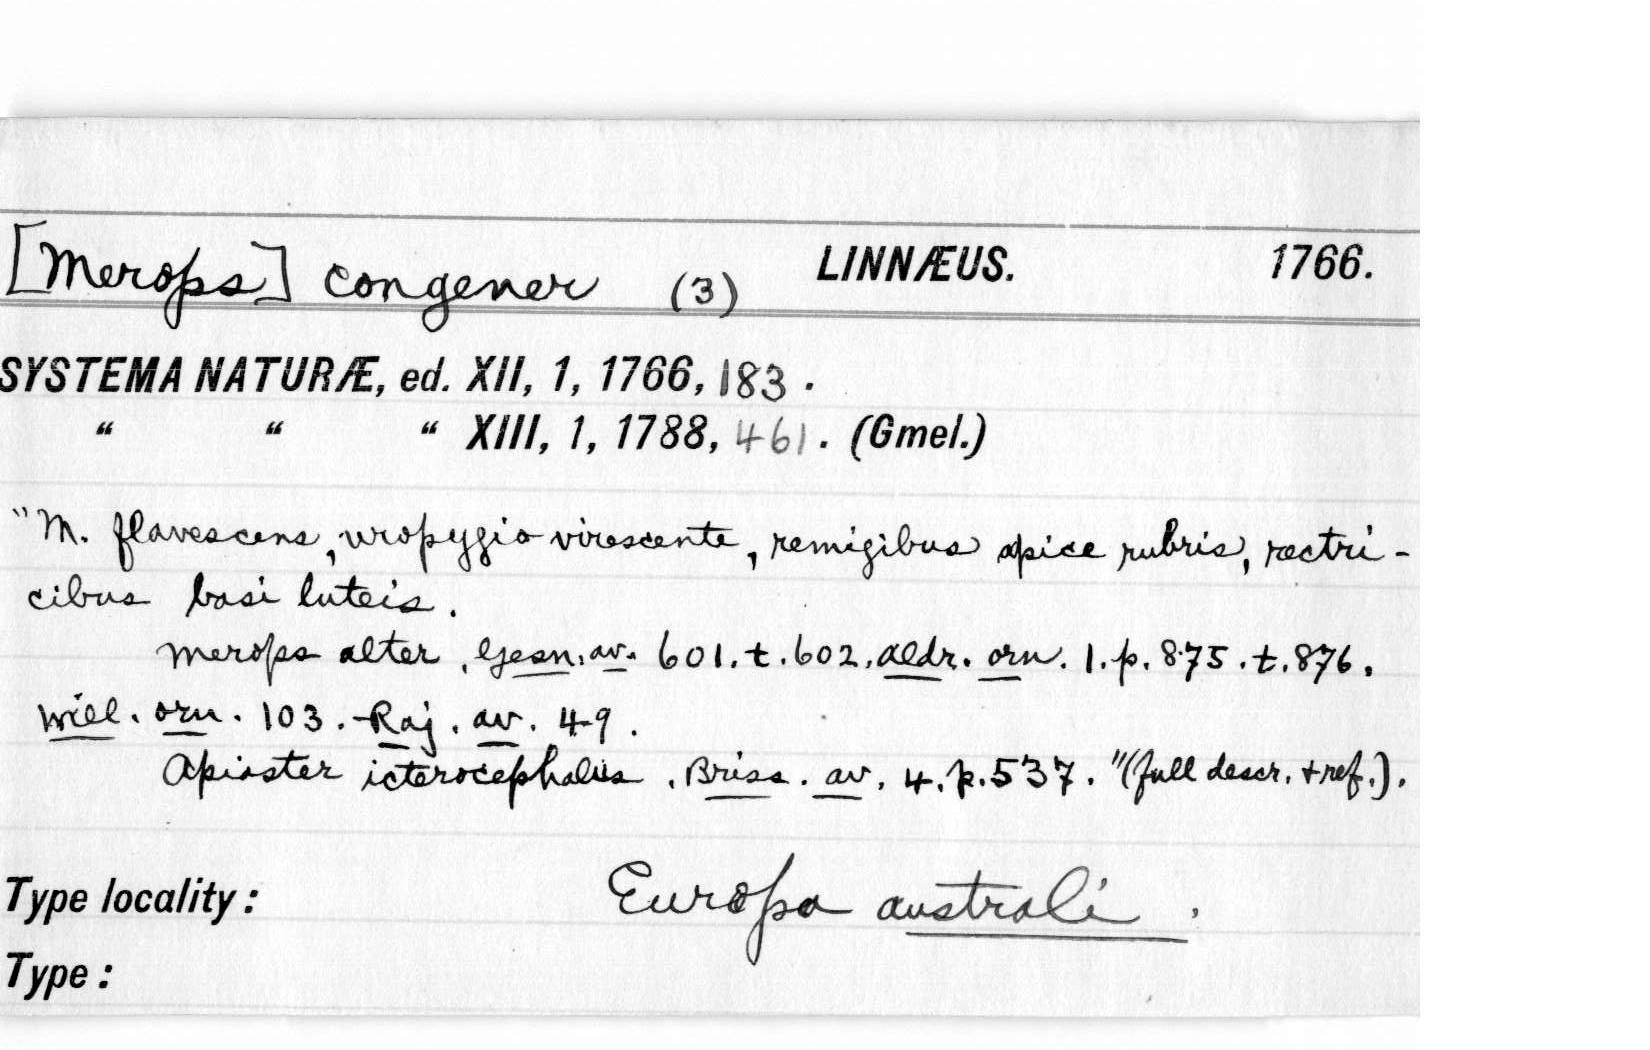 [Merops] congener (3) LINNÆUS. 1766.
SYSTEMA NATURÆ, ed. XII, 1, 1766, 183.
“ “ “ XIII, 1, 1788, 461. (Gmel.)
"M. flavescens, uropygio virescente, remigibus apice rubris, rectri-
cibus basi luteis.
Merops alter, Gesn. av. 601. t. 602. aldr. orn. 1. p. 875. t. 876.
Will. orn. 103. Raj. av. 49.
Apiaster icterocephalus. Briss. av. 4. p. 537. "(full descr. + ref.).
Type locality: Europa australi.
Type: